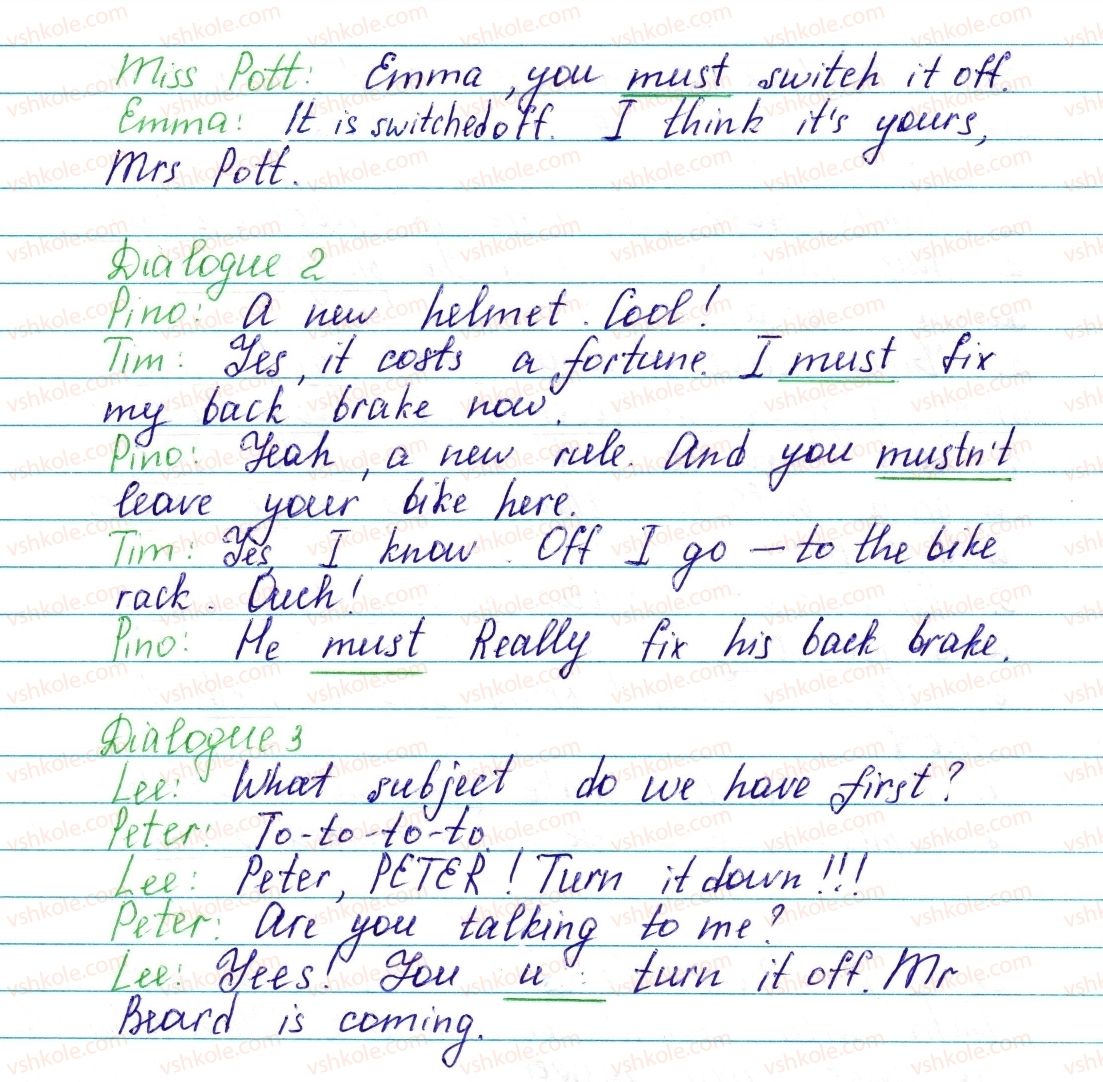 Miss Pott: Emma, you must switch it off.
Emma: It is switched off. I think it's yours,
Mrs Pott.
Dialogue 2
Pino: A new helmet. Cool!
Tim: Yes, it costs a fortune. I must fix
my back brake now.
Pino: Yeah, a new rule. And you mustn't
leave your bike here.
Tim: Yes, I know. Off I go – to the bike
rack. Ouch!
Pino: He must Really fix his back brake.
Dialogue 3
Lee: What subject do we have first?
Peter: To-to-to-to.
Lee: Peter, PETER! Turn it down!!!
Peter: Are you talking to me?
Lee: Yees! You u turn it off. Mr
Beard is coming.
vshkole.com